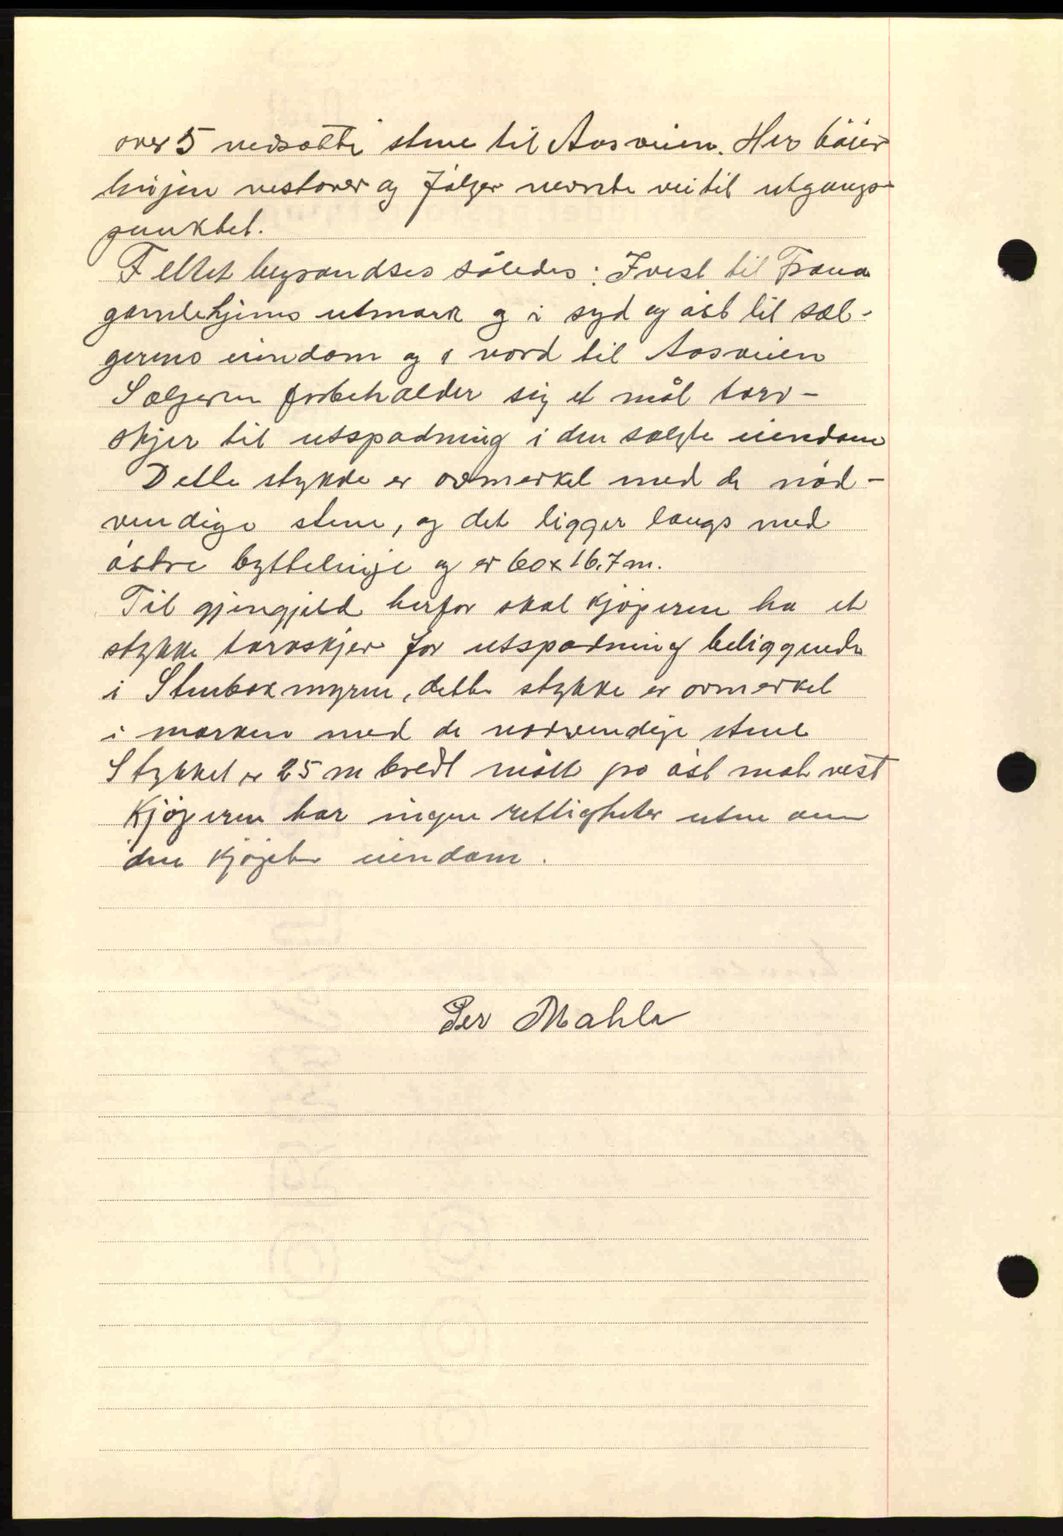 over 5 nedsatte stene til Aasveien. Her böier
linjen vestover og fölger nevnte vei til utgangs-
punktet.
Feltet begrændses således: I vest til Fræna
gamlehjems utmark og i syd og öst til sæl-
gerens eiendom og i nord til Aasveien
Sælgeren forbeholder sig et mål torv-
skjer til utspadning i den solgte eiendom
Dette stykke er avmerket med de nöd-
vendige stene, og det ligger langs med
östre byttelinje og er 60 x 16.7 m.
Til gjengjeld herfor skal kjøperen ha et
stykke torvskjer for utspadning beliggende
i Stenbokmyren, dette stykke er avmerket
i marken med de nødvendige stene
Stykket er 25 m bredt målt fra öst mot vest
Kjøperen har ingen rettigheter uten om
den kjøpte eiendom.
Per Mahle